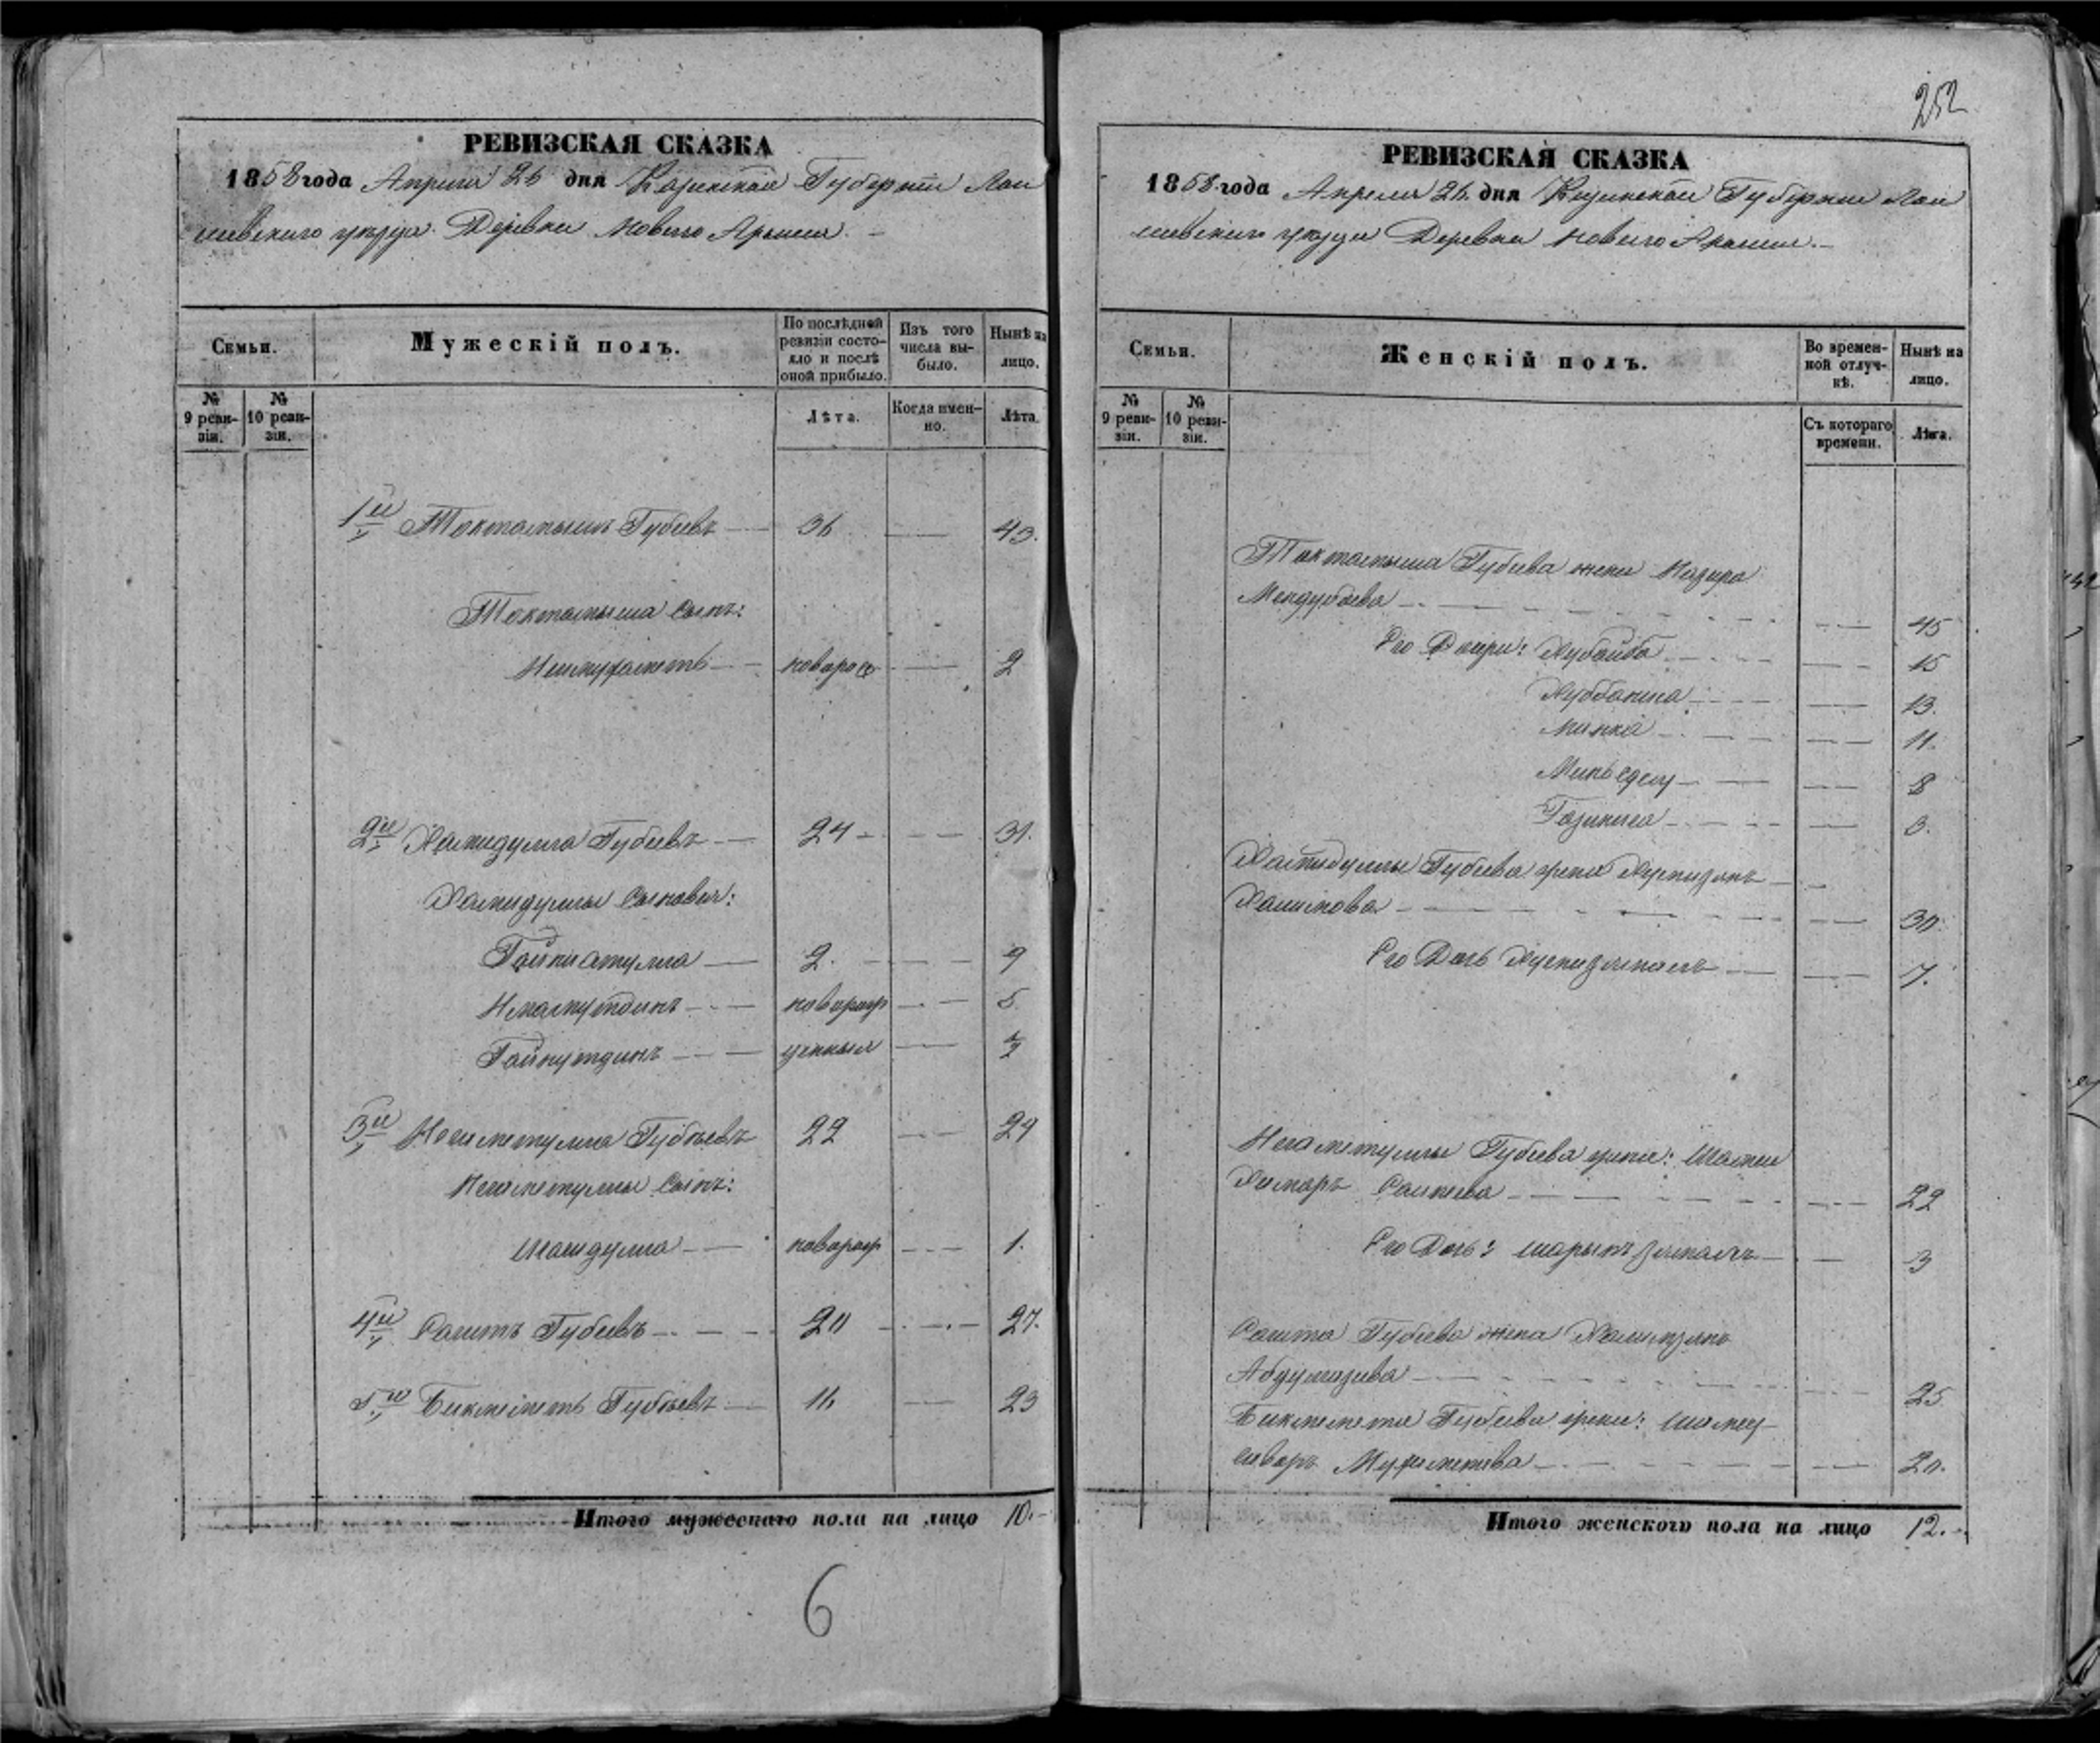 252
РЕВИЗСКАЯ СКАЗКА
1858 года Апреля 26 дня Казанской Губернии Лаи
шевского уезда Деревни Нового Арыша.
Семьи.
Мужескій полъ.
По послѣдней ревизіи состояло и послѣ оной прибыло.
Изъ того числа выбыло.
Нынѣ на лицо.
№ 9 ревизіи.
№ 10 ревизіи.
Лѣта.
Когда именно.
Лѣта.
1й Токтамышъ Губеевъ 36 43.
Токтамыша Сынъ:
новорож 2
2й Хамидулла Губеевъ 24 31.
Хамидуллы Сыновья:
Гайниятулла 2. 9
Имамутдинъ новорож 5.
Гайнутдинъ денныя ½
3й Негаметулла Губеевъ 22 29
Негаметуллы Сынъ:
Шагидулла новорож 1.
4й Сагитъ Губеевъ 20 27.
5й Бикмеметь Губеевъ 16 23
Итого мужескаго пола на лицо 10.
6
РЕВИЗСКАЯ СКАЗКА
1858 года Апреля 26 дня Казанской Губернии Лаи
шевского уезда Деревни Нового Арыша.
Семьи.
Женскій полъ.
Во временной отлучкѣ.
Нынѣ на лицо.
№ 9 ревизіи.
№ 10 ревизіи.
Съ котораго времени.
Лѣта.
Токтамыша Губеева жена Назира
45
Его Дочери: Хубайба 15
Хуббаниса 13.
Минка 11.
8
3.
Хамидуллы Губеева жена
Халитова 30.
Его Дочь 7.
Негаметуллы Губеева жена: Шамси
Камаръ 22
Его Дочь: 3
Сагита Губеева жена
25
Бикмеметя Губеева жена:
20.
Итого женского пола на лицо 12.